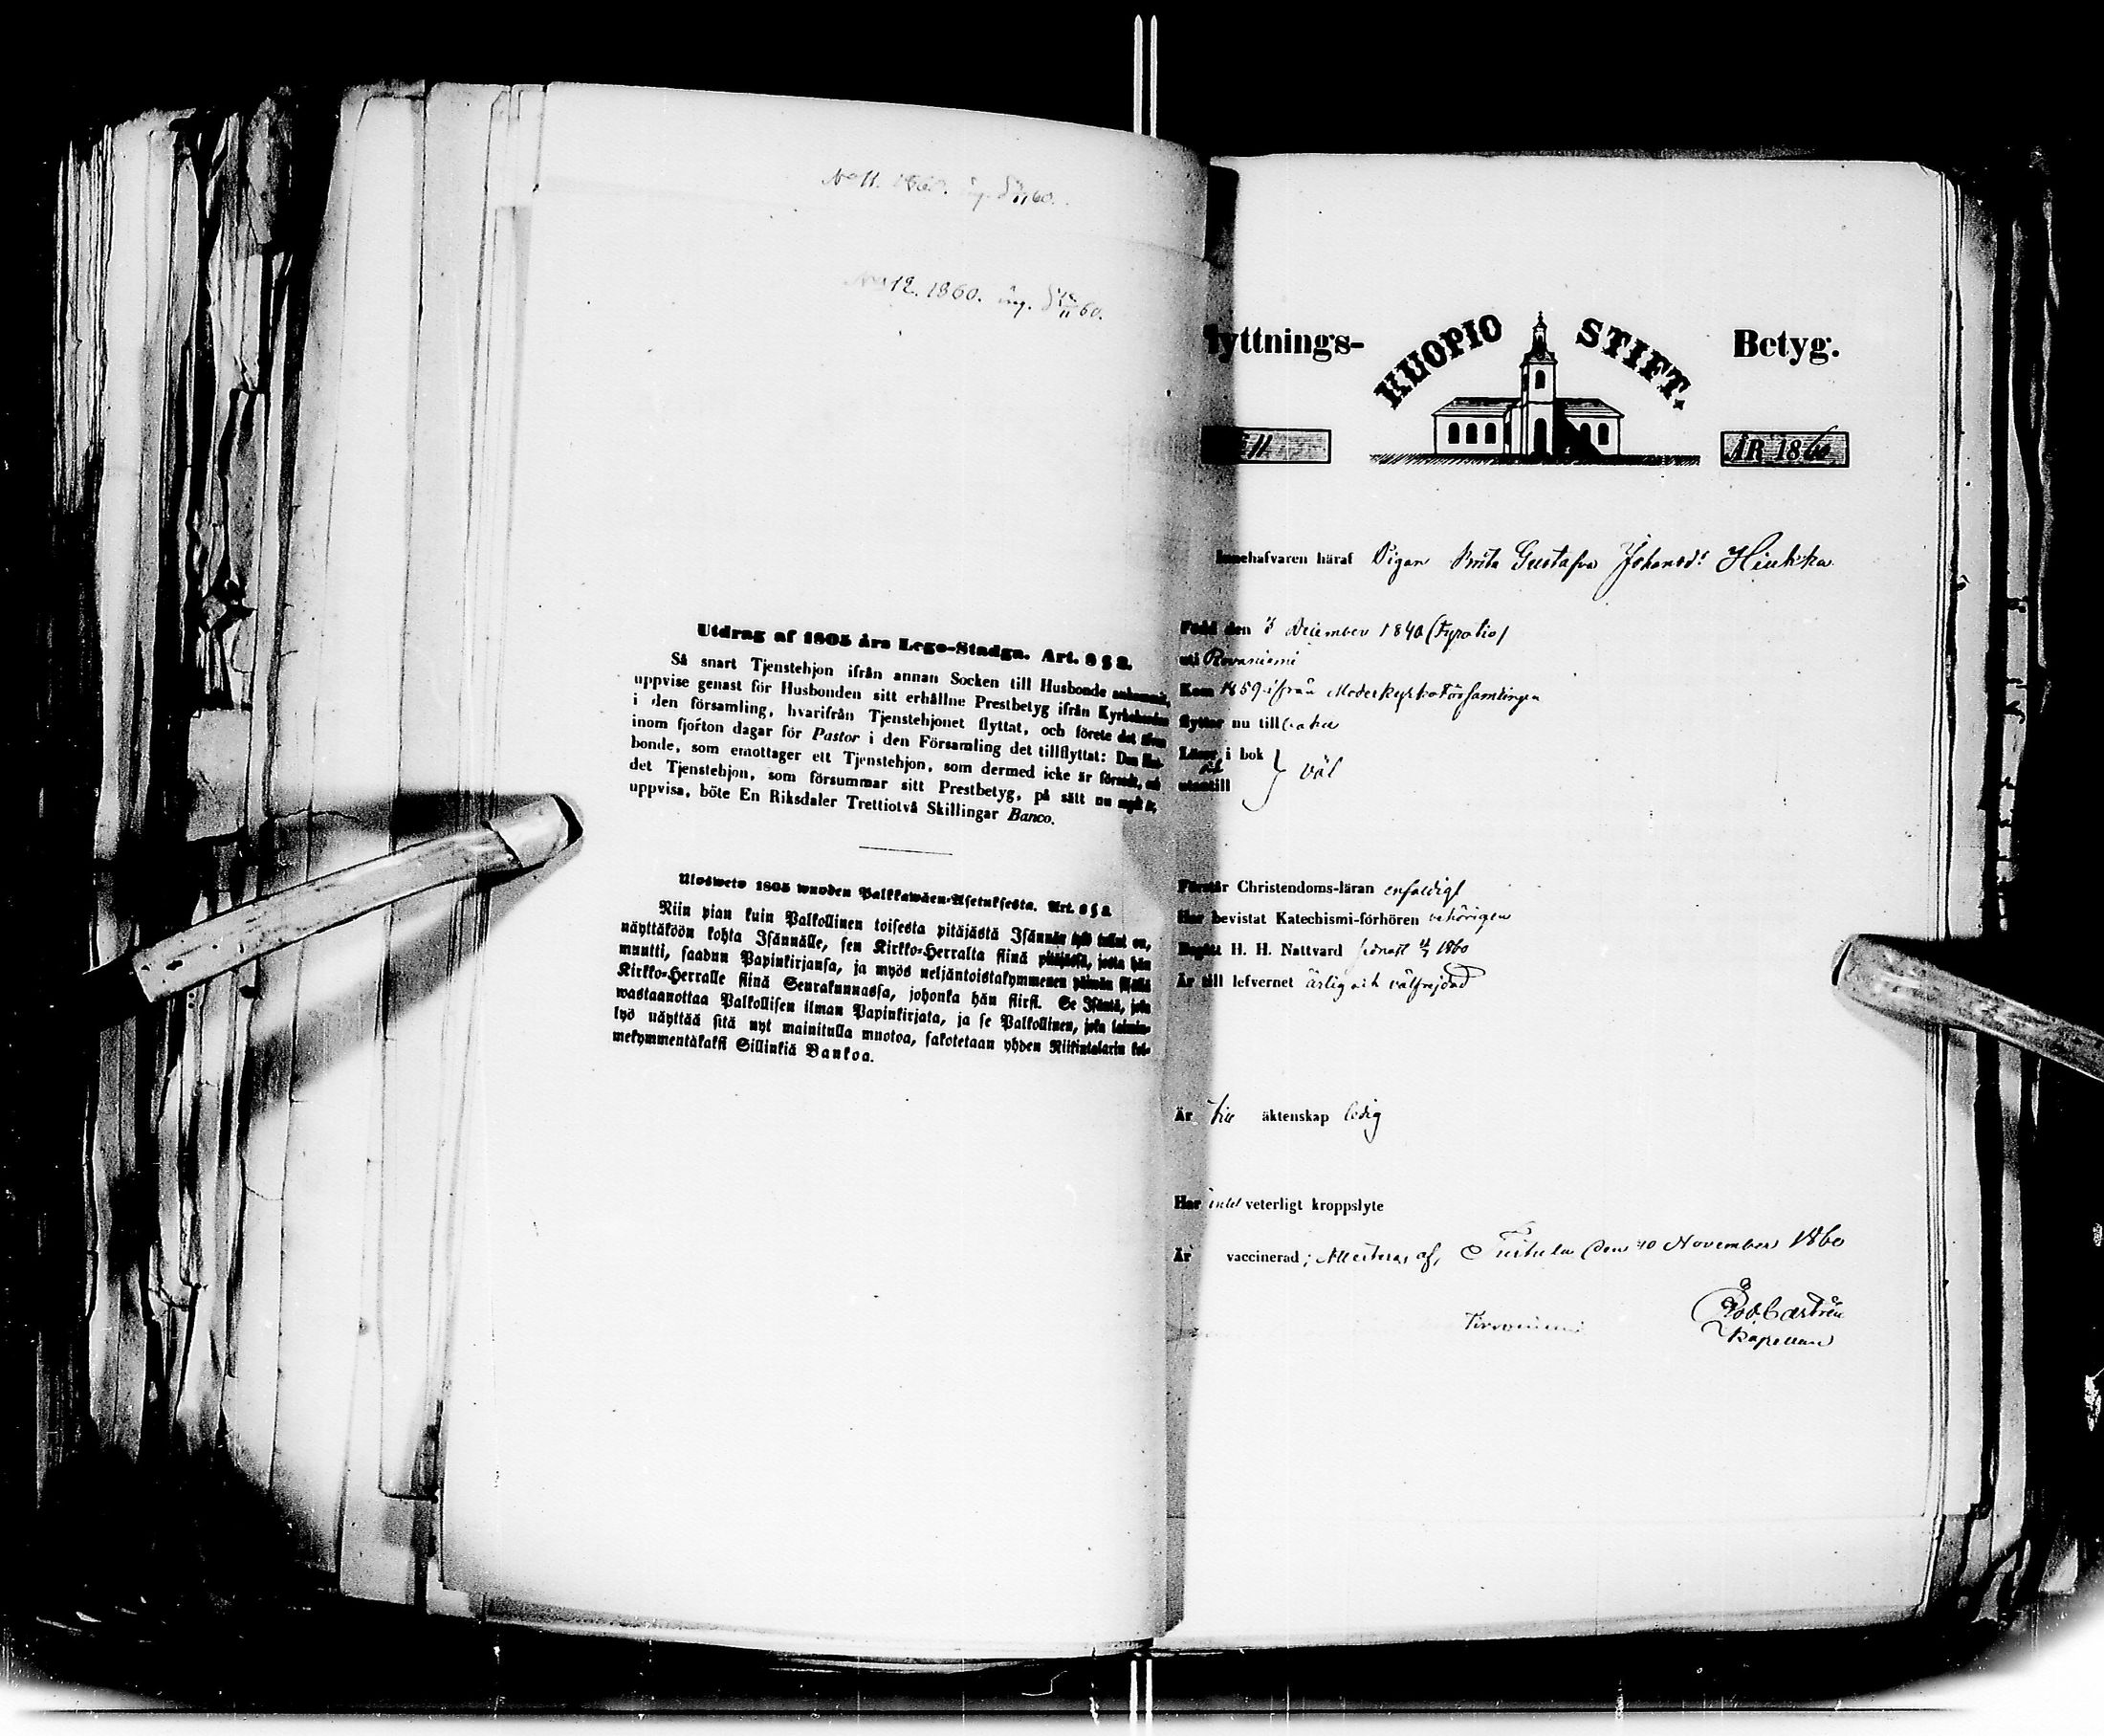 No 11. 1860. ing. d. /11 60.
No 12. 1860. ing. d. /11 60.
Utdrag af 1805 års Lego-Stadga. Art. 8 § 2.
Så snart Tjenstehjon ifrån annan Socken till Husbonde ankommit,
uppvise genast för Husbonden sitt erhållne Prestbetyg ifrån Kyrkoherden
i den församling, hvarifrån Tjenstehjonet flyttat, och förete det äfven
inom fjorton dagar för Pastor i den Församling det tillflyttat: Den Hus-
bonde, som emottager ett Tjenstehjon, som dermed icke är försedt, och
det Tjenstehjon, som försummar sitt Prestbetyg, på sätt nu sagdt är,
uppvisa, böte En Riksdaler Trettiotvå Skillingar Banco.
Ulosweto 1805 wuoden Palkkawäen-Asetuksesta. Art. 8 § 2.
Niin pian kuin Palkollinen toisesta pitäjästä Isännän tykö tullut on,
näyttäköön kohta Isännälle, sen Kirkko-Herralta siinä pitäjässä, josta hän
muutti, saadun Papinkirjansa, ja myös neljäntoistakymmenen päiwän sisällä
Kirkko-Herralle siinä Seurakunnassa, johonka hän siirsi. Se Isäntä, joka
wastaanottaa Palkollisen ilman Papinkirjata, ja se Palkollinen, joka laimin-
lyö näyttää sitä nyt mainitulla muotoa, sakotetaan yhden Riikintalarin kol-
mekymmentäkaksi Sillinkiä Bankoa.
lyttnings- KUOPIO STIFT. Betyg.
11 ÅR 1860
Innehafvaren häraf Pigan Brita Gustafva Johansd:r Hiukka
Född den 3 December 1840 (Fyratio)
uti Rovaniemi
Kom 1859 ifrån Moderkyrkoförsamlingen
flyttar nu tillbaka
Läser i bok
och } väl
utantill
Förstår Christendoms-läran enfaldigt
Har bevistat Katechismi-förhören behörigen
Begått H. H. Nattvard sednast 1860
Är till lefvernet ärlig och välfrejdad
Är till äktenskap ledig
Har intet veterligt kroppslyte
Är vaccinerad; Attesteras af, Turtula den 10 November 1860
Rob. Castrén
Kapellan